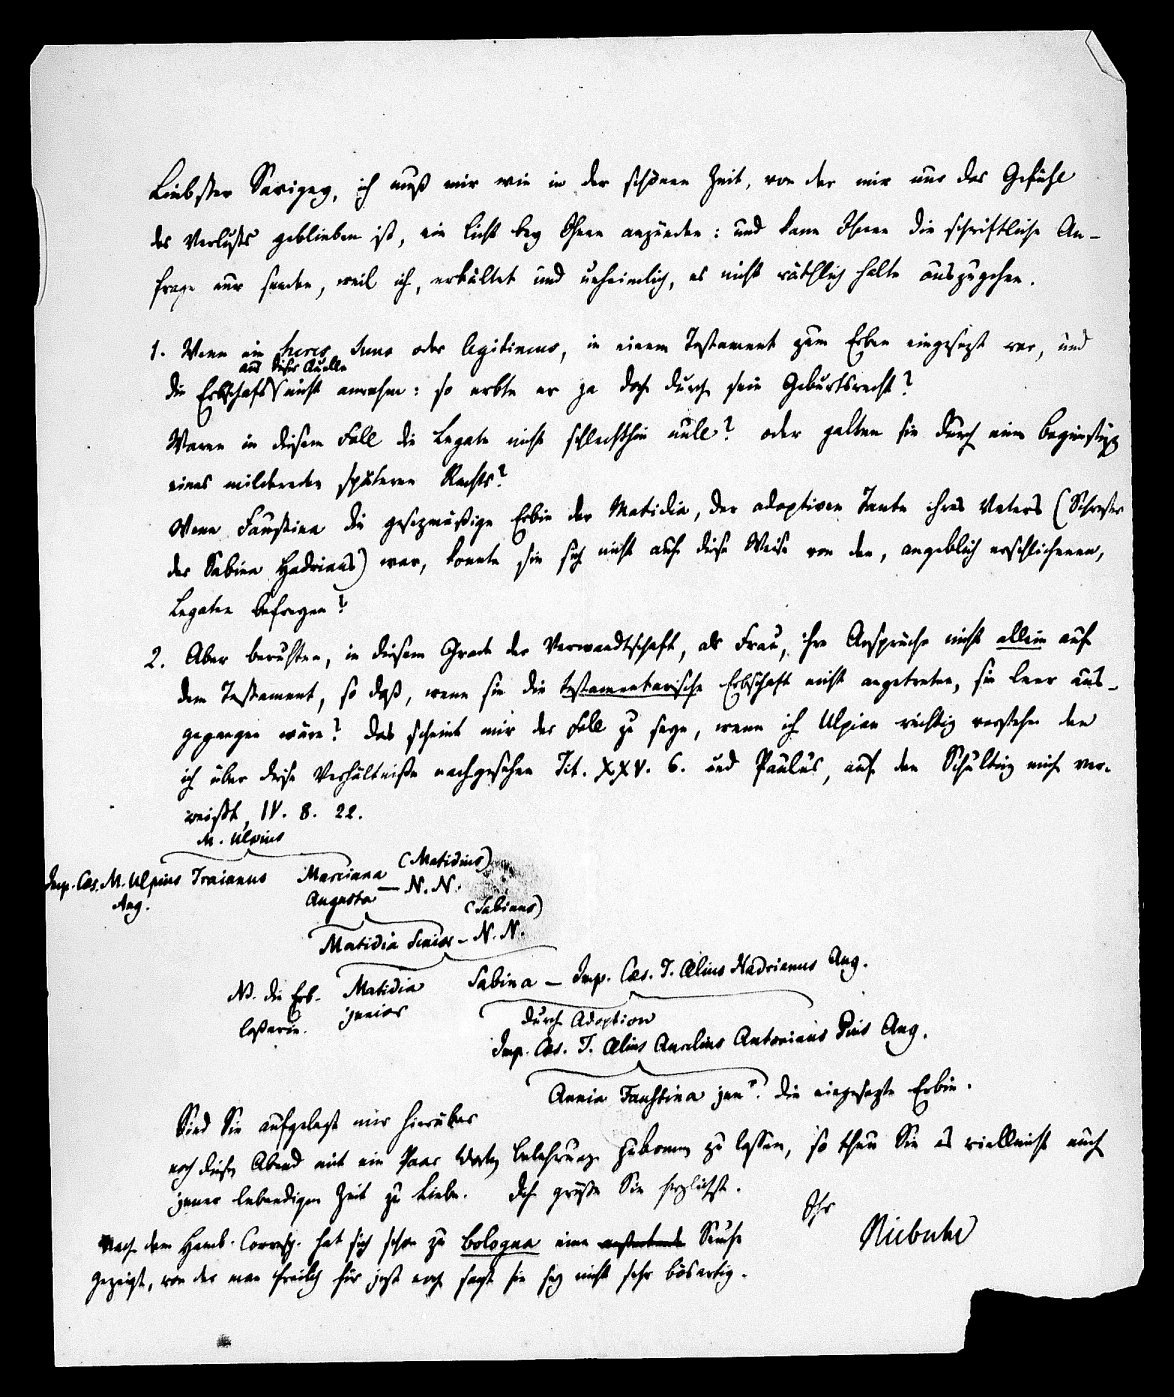 Liebster Savigny, ich muß mir wie in der schönen Zeit, von der mir nur das Gefühl
des Verlusts geblieben ist, ein Licht bey Ihnen anzünden: und kann Ihnen die schriftliche An-
frage nur senden, weil ich, erkältet und unheimlich, es nicht räthlich halte auszugehen.
1. Wenn ein heres suus oder legitimus, in einem Testament zum Erben eingesezt war, und
aus dieser Quelle
die Erbschaft nicht annahm: so erbte er ja doch durch sein Geburtsrecht?
Waren in diesem Fall die Legate nicht schlechthin null? oder galten sie durch eine Begünstigg
eines mildernden späteren Rechts?
Wenn Faustina die gesezmäßige Erbin der Matidia, der adoptiven Tante ihres Vaters (Schwester
der Sabina Hadrians) war, konnte sie sich nicht auf diese Weise von den, angeblich erschlichenen,
Legaten befreyen?
2. Aber beruhten, in diesem Grade der Verwandtschaft, als Frau, ihre Ansprüche nicht allein auf
dem Testament, so daß, wenn sie die testamentarische Erbschaft nicht angetreten, sie leer aus-
gegangen wäre? Das scheint mir der Fall zu seyn, wenn ich Ulpian richtig verstehe den
ich über diese Verhältniße nachgesehen Tit. XXV. 6. und Paulus, auf den Schulting mich ver-
weißt, IV. 8. 22.
M. Ulpius
Imp. Cæs. M. Ulpius Traianus Marciana (Matidius)
Aug. Augusta — N. N.
(Sabinus)
Matidia Senior — N. N.
Nb. die Erb- Matidia Sabina — Imp. Cæs. T. Ælius Hadrianus Aug.
laßerin. junior
durch Adoption
Imp. Cæs. T. Ælius Aurelius Antoninus Pius Aug.
Annia Faustina jun. die eingesezte Erbin.
Sind Sie aufgelegt mir hierüber
noch diesen Abend mit ein Paar Worten Belehrung zukommen zu lassen, so thun Sie es vielleicht auch
jener lebendigen Zeit zu Liebe. Ich grüße Sie herzlichst.
Ihr
Niebuhr
Nach dem Hamb. Corresp. hat sich schon zu Bologna eine Seuche
gezeigt, von der man freilich für jezt noch sagt sie sey nicht sehr bösartig.